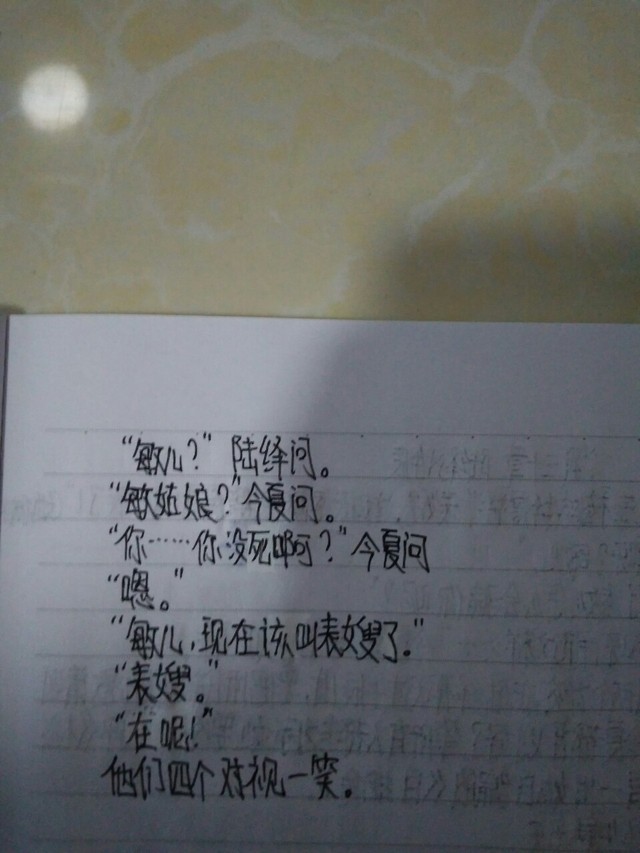 “敏儿？”陆绎问。
“敏姑娘？”今夏问。
“你……你没死啊？”今夏问
“嗯。”
“敏儿，现在该叫表嫂了。”
“表嫂。”
“在呢！”
他们四个对视一笑。